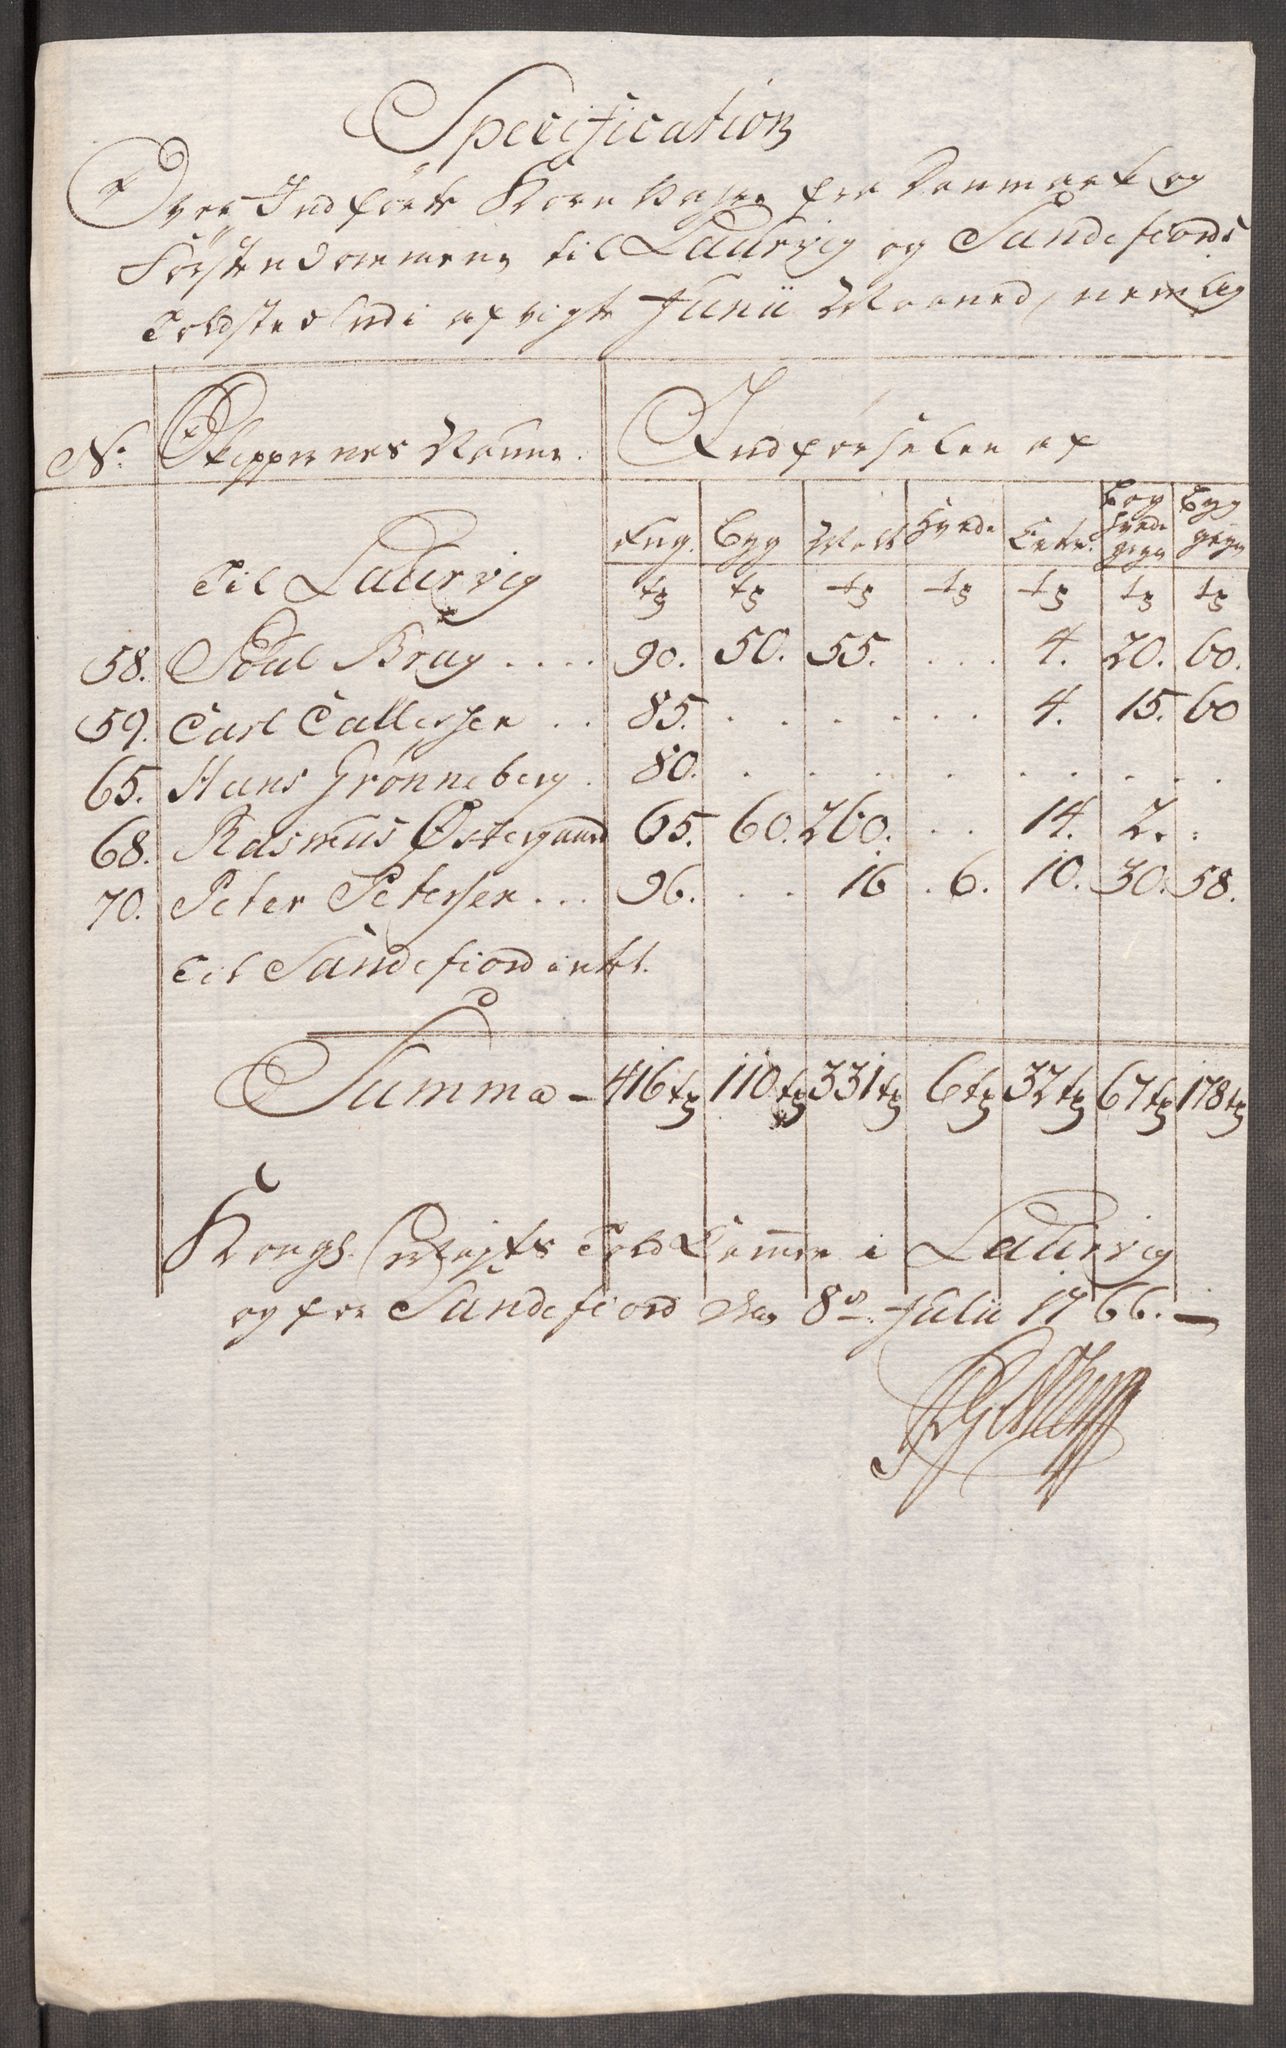 Specification
Over Indførte Korn Vahre fra Danmark og
Førstendommene til Laurvig og Sandefiords
Toldsted udi afvigte Junii Maaned, nemlig
No. Skippernes Nafne. Indførselen af
Rug. Byg Malt Hvede Erter. Bog Hvede gryn Byg gryn
Til Laurvig tr tr tr tr tr tr tr
58. Poul Brug .... 90. 50. 55. . . . 4. 20. 60.
59. Carl Callessen . . 85. . . . . . . . 4. 15. 60
65. Hans Grønneberg . 80. . . . . . . . . .
68. Rasmus Østergaard 65. 60. 260. . . 14. 2. .
70. Peter Petersen ... 96. . . 16 . 6. 10. 30. 58.
Til Sandefiord intet.
Summa - 416 tr 110 tr 331 tr 6 tr 32 tr 67 tr 178 tr
Kongl. Mayts Told Cammer i Laurvig
og for Sandefiord den 8de Julii 1766. -